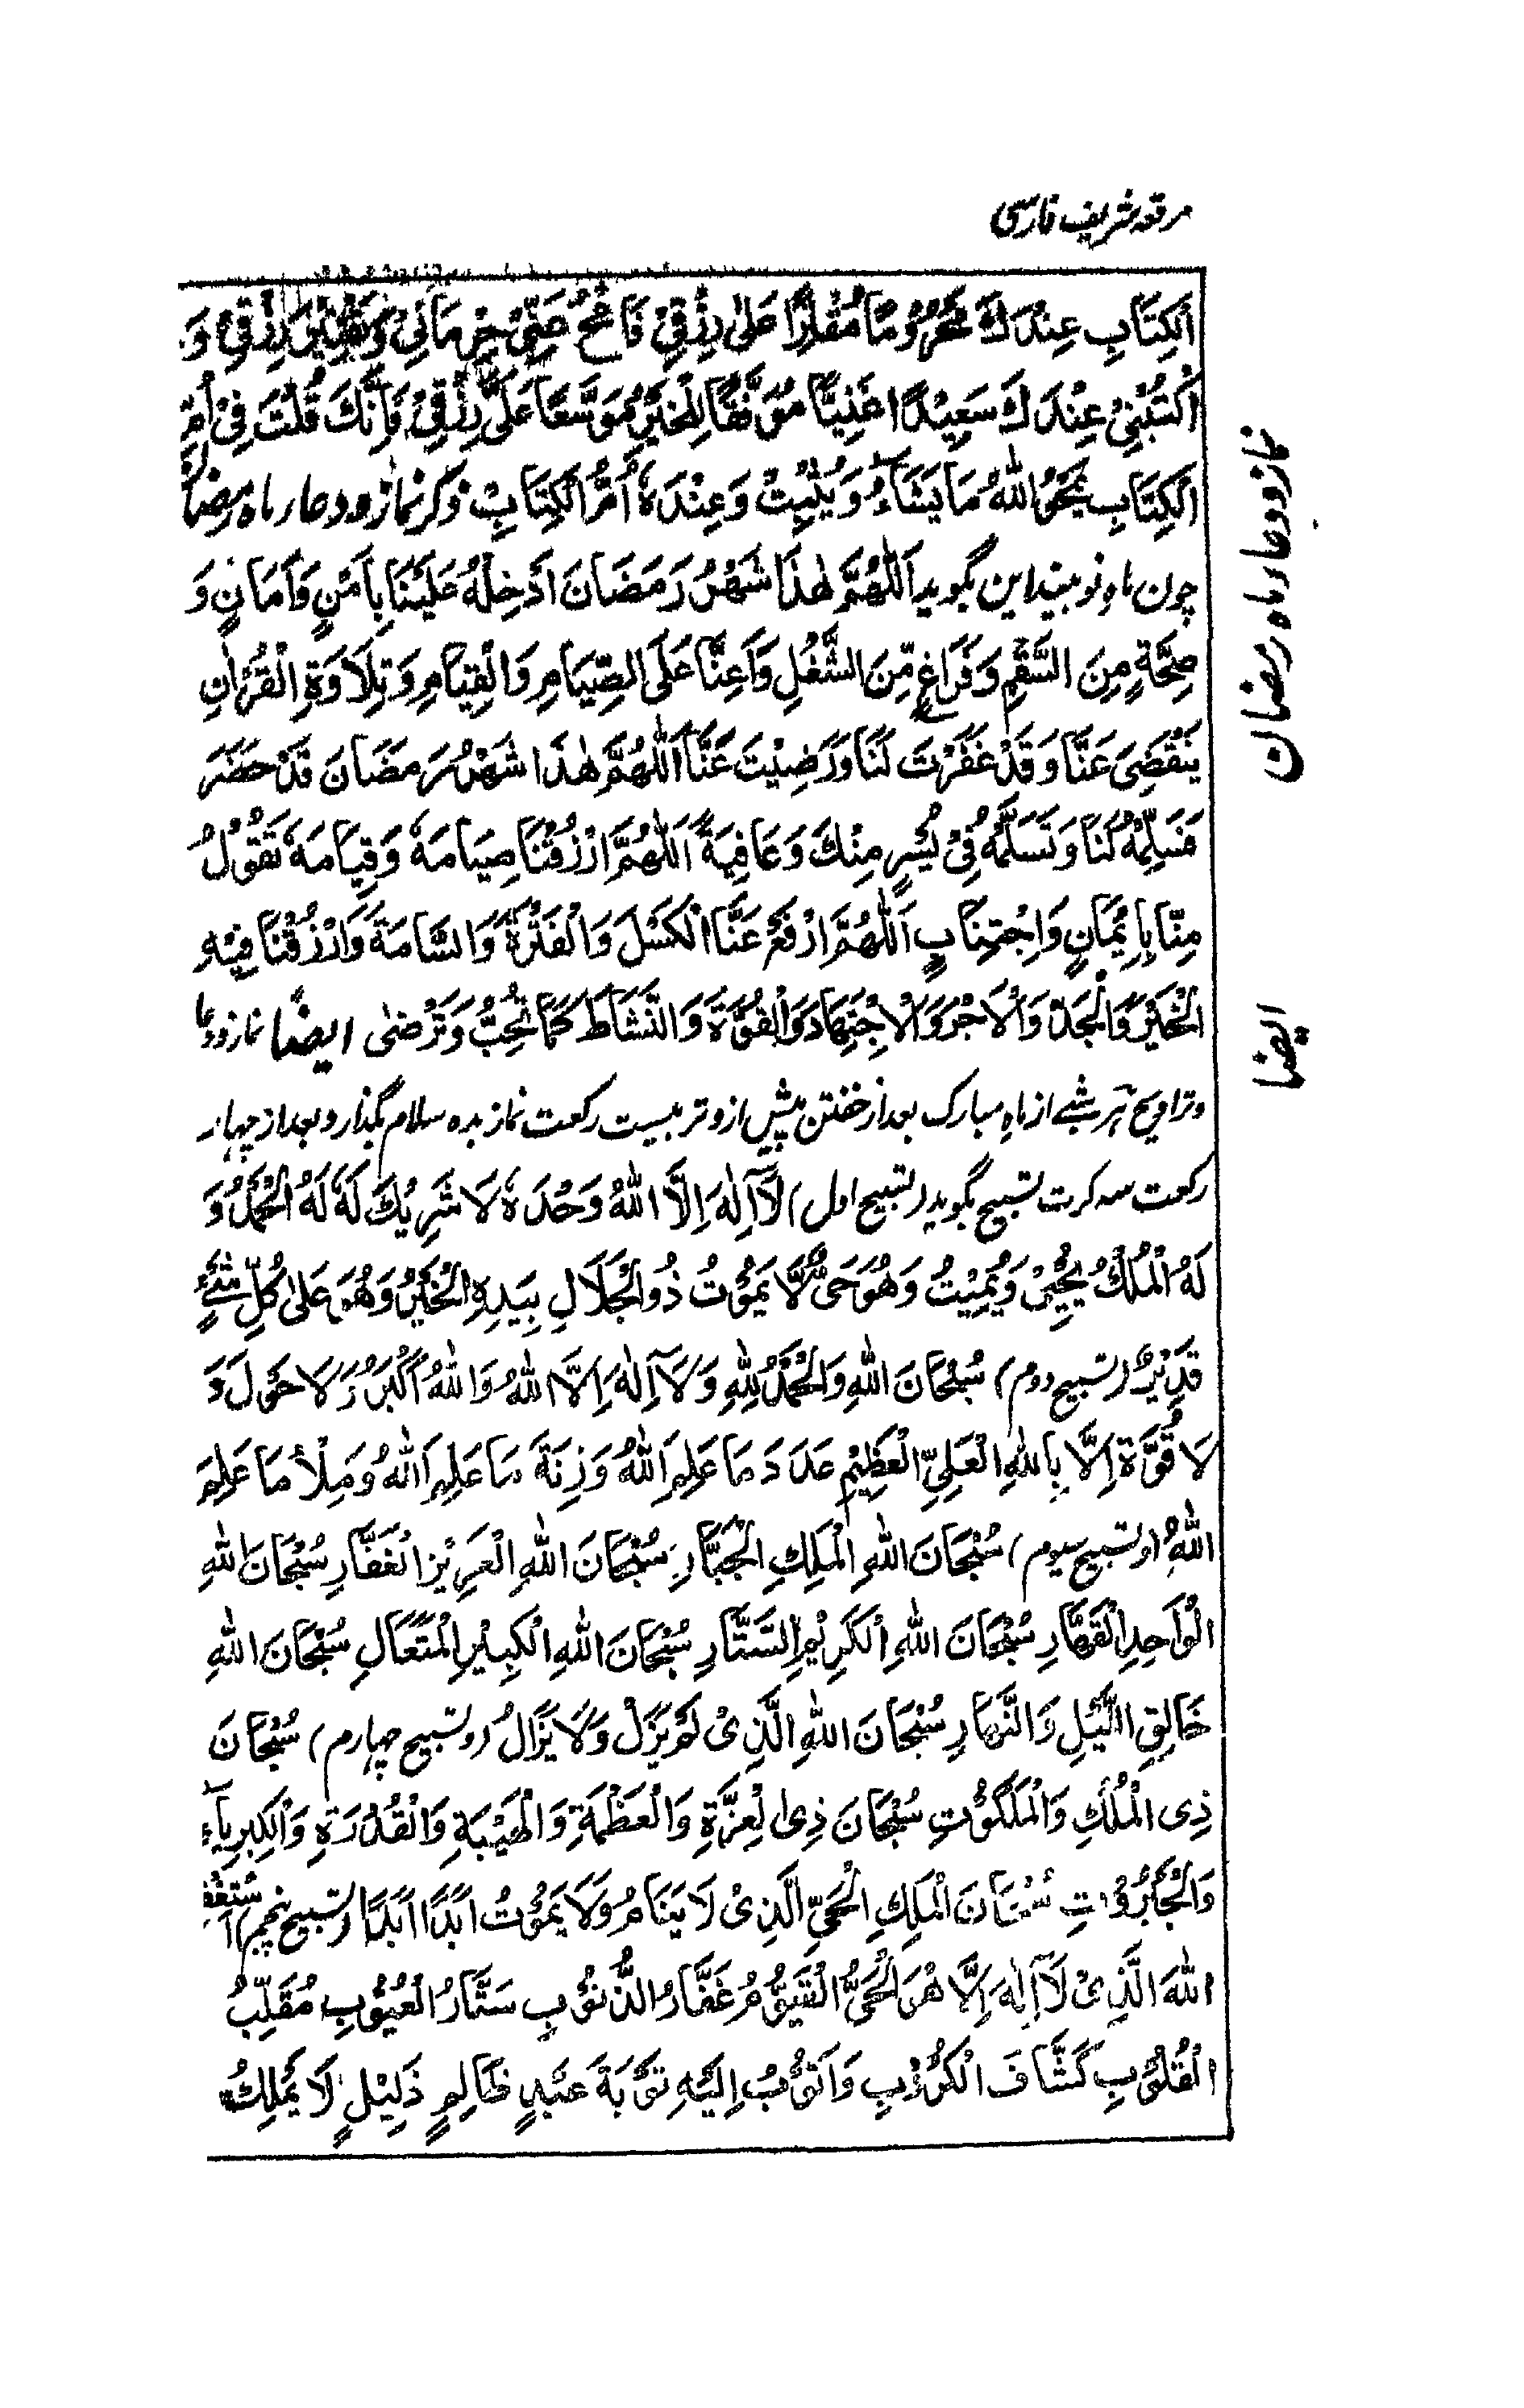 مرقعہ شریف فارسی
الْكِتَابِ عِنْدَكَ مَحْرُوْمًا مُقْتَرًا عَلٰى رِزْقِيْ فَامْحُ عَنِّيْ حِرْمَانِيْ وَتَقْتِيْرَ رِزْقِيْ وَ
اكْتُبْنِيْ عِنْدَكَ سَعِيْدًا غَنِيًّا مُوَفَّقًا لِلْخَيْرِ مُوَسَّعًا عَلَيَّ رِزْقِيْ فَاِنَّكَ قُلْتَ فِيْ اُمِّ
الْكِتَابِ يَمْحُو اللّٰهُ مَا يَشَآءُ وَيُثْبِتُ وَعِنْدَهٗ اُمُّ الْكِتَابِ ذکر نماز و دعاء ماہ رمضان
چون ماہ نو بیند این بگوید اَللّٰهُمَّ هٰذَا شَهْرُ رَمَضَانَ اَدْخِلْهُ عَلَيْنَا بِاَمْنٍ وَاَمَانٍ وَ
صِحَّةٍ مِنَ السَّقَمِ وَفَرَاغٍ مِّنَ الشُّغْلِ وَاَعِنَّا عَلَى الصِّيَامِ وَالْقِيَامِ وَتِلَاوَةِ الْقُرْاٰنِ
يَنْقَضِىَ عَنَّا وَقَدْ غَفَرْتَ لَنَا وَرَضِيْتَ عَنَّا اَللّٰهُمَّ هٰذَا شَهْرُ رَمَضَانَ قَدْ حَضَرَ
فَسَلِّمْهُ لَنَا وَتَسَلَّمْهُ فِيْ يُسْرٍ مِنْكَ وَعَافِيَةً اَللّٰهُمَّ ارْزُقْنَا صِيَامَهٗ وَقِيَامَهٗ تَقُوْلُ
مِنَّا بِاِيْمَانٍ وَاِجْتِنَابٍ اَللّٰهُمَّ ارْفَعْ عَنَّا الْكَسَلَ وَالْفَتْرَةَ وَالسَّامَةَ وَارْزُقْنَا فِيْهِ
الْخَيْرَ وَالْجَدَّ وَالْاَجْرَ وَالْاِجْتِهَادَ وَالْقُوَّةَ وَالنَّشَاطَ كَمَا تُحِبُّ وَتَرْضٰى ایضًا نماز و دعا
و تراویح ہر شبے از ماہ مبارک بعد از خفتن پیش از وتر بیست رکعت نماز بدہ سلام بگذارد و بعد از چہار
رکعت سہ کرت تسبیح بگوید (تسبیح اول) لَآ اِلٰهَ اِلَّا اللّٰهُ وَحْدَهٗ لَا شَرِيْكَ لَهٗ لَهُ الْحَمْدُ وَ
لَهُ الْمُلْكُ يُحْيِيْ وَيُمِيْتُ وَهُوَ حَىٌّ لَّا يَمُوْتُ ذُو الْجَلَالِ بِيَدِهِ الْخَيْرُ وَهُوَ عَلٰى كُلِّ شَيْءٍ
قَدِيْرٌ (تسبیح دوم) سُبْحَانَ اللّٰهِ وَالْحَمْدُ لِلّٰهِ وَلَآ اِلٰهَ اِلَّا اللّٰهُ وَاللّٰهُ اَكْبَرُ وَلَا حَوْلَ وَ
لَا قُوَّةَ اِلَّا بِاللّٰهِ الْعَلِىِّ الْعَظِيْمِ عَدَدَ مَا عَلِمَ اللّٰهُ وَزِنَةَ مَا عَلِمَ اللّٰهُ وَمِلْأَ مَا عَلِمَ
اللّٰهُ (و تسبیح سیوم) سُبْحَانَ اللّٰهِ الْمَلِكِ الْجَبَّارِ سُبْحَانَ اللّٰهِ الْعَزِيْزِ الْغَفَّارِ سُبْحَانَ اللّٰهِ
الْوَاحِدِ الْقَهَّارِ سُبْحَانَ اللّٰهِ الْكَرِيْمِ السَّتَّارِ سُبْحَانَ اللّٰهِ الْكَبِيْرِ الْمُتَعَالِ سُبْحَانَ اللّٰهِ
خَالِقِ اللَّيْلِ وَالنَّهَارِ سُبْحَانَ اللّٰهِ الَّذِىْ لَمْ يَزَلْ وَلَا يَزَالُ (و تسبیح چہارم) سُبْحَانَ
ذِى الْمُلْكِ وَالْمَلَكُوْتِ سُبْحَانَ ذِى الْعِزَّةِ وَالْعَظْمَةِ وَالْهَيْبَةِ وَالْقُدْرَةِ وَالْكِبْرِيَآءِ
وَالْجَبَرُوْتِ سُبْحَانَ الْمَلِكِ الْحَىِّ الَّذِىْ لَا يَنَامُ وَلَا يَمُوْتُ اَبَدًا اَبَدًا (تسبیح پنجم) اَسْتَغْفِرُ
اللّٰهَ الَّذِىْ لَآ اِلٰهَ اِلَّا هُوَ الْحَىُّ الْقَيُّوْمُ غَفَّارُ الذُّنُوْبِ سَتَّارُ الْعُيُوْبِ مُقَلِّبُ
الْقُلُوْبِ كَشَّافَ الْكُرُوْبِ وَاَتُوْبُ اِلَيْهِ تَوْبَةَ عَبْدٍ ظَالِمٍ ذَلِيْلٍ لَا يَمْلِكُ
نماز و دعاء ماہ رمضان
ایضا